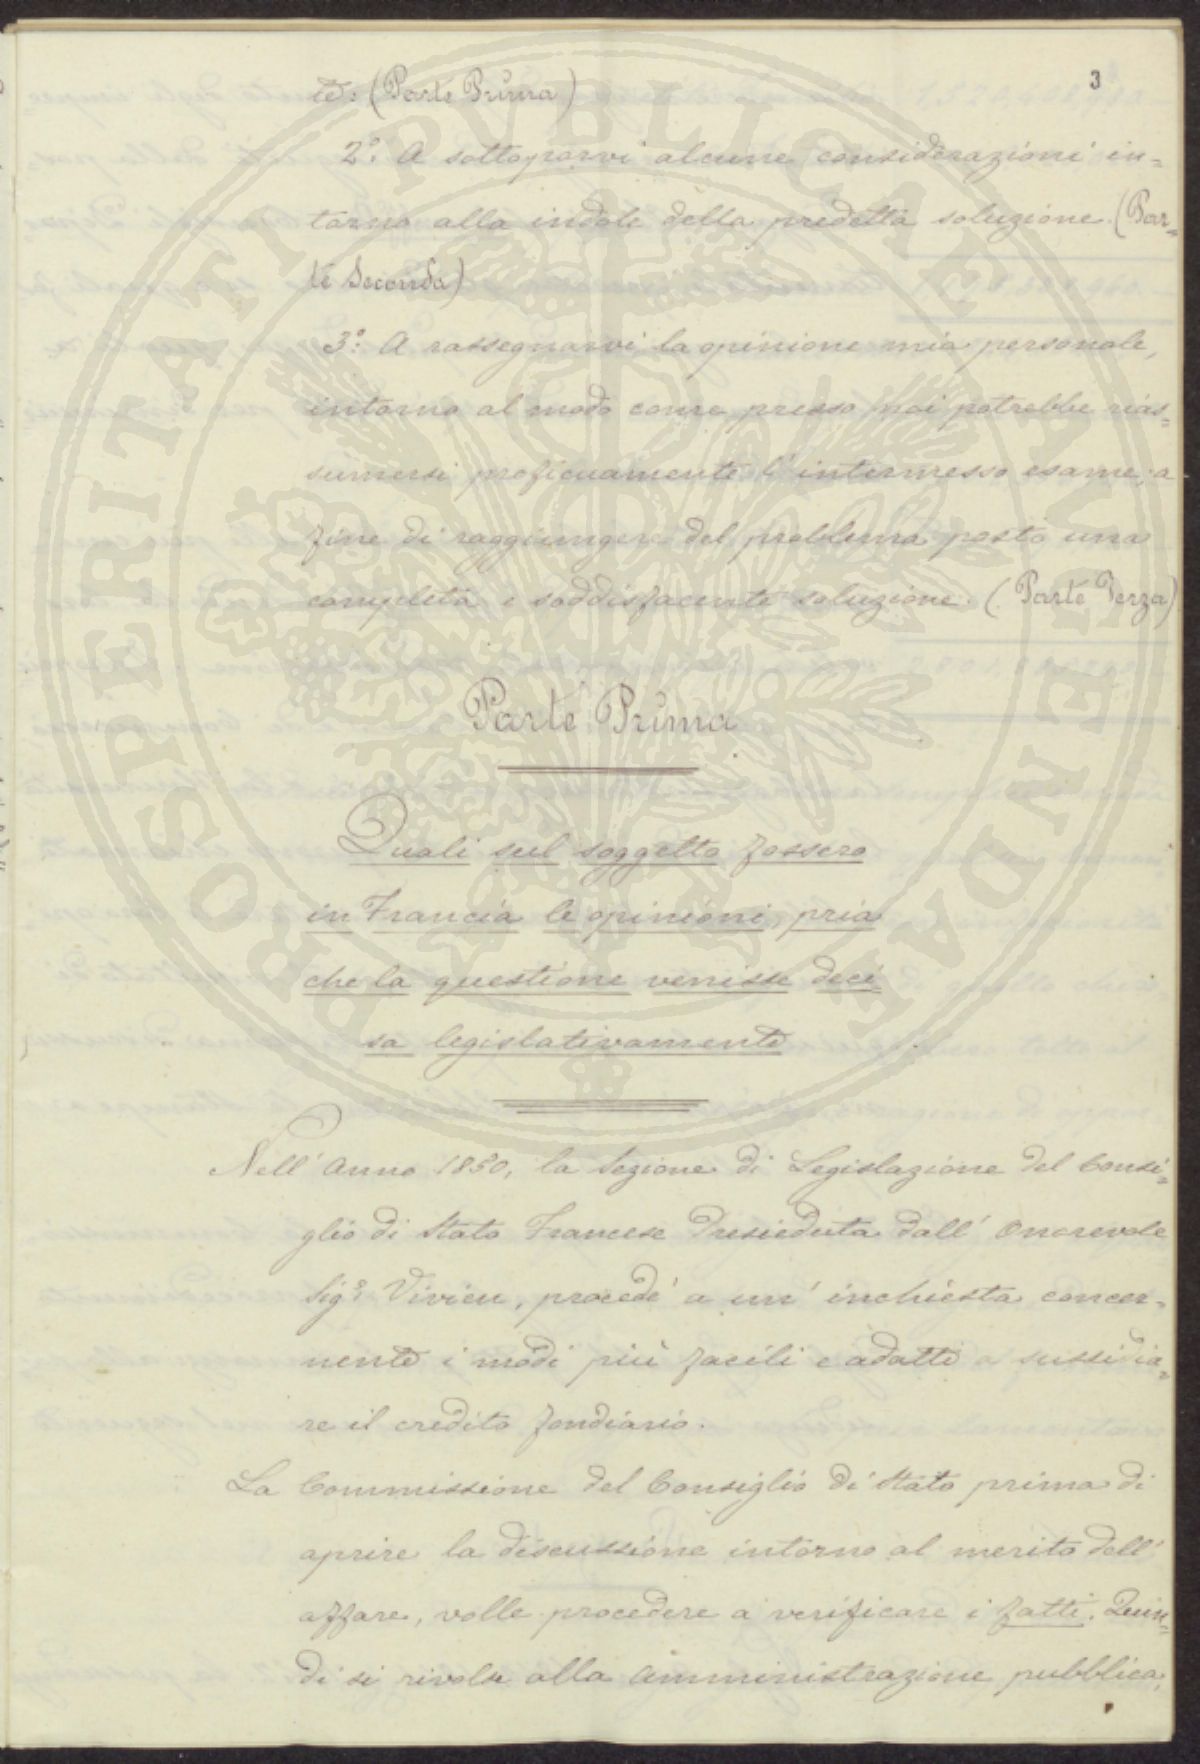 3
te. (Parte Prima)
2°: A sottoporvi alcune considerazioni in=
torno alla indole della predetta soluzione. (Par=
te Seconda)
3°: A rassegnarvi la opinione mia personale,
intorno al modo come presso noi potrebbe rias=
sumersi proficuamente l'intermesso esame, a
fine di raggiungere del problema posto una
completa e soddisfacente soluzione. (Parte Terza)
Parte Prima
Quali sul soggetto fossero
in Francia le opinioni, pria
che la questione venisse deci=
sa legislativamente
Nell'Anno 1850, la Sezione di Legislazione del Consi=
glio di Stato Francese Presieduta dall'Onorevole
Sigr Vivien, procedé a un'inchiesta concer=
nente i modi più facili e adatti a sussidia=
re il credito fondiario.
La Commissione del Consiglio di Stato prima di
aprire la discussione intorno al merito dell'
affare, volle procedere a verificare i fatti. Quin=
di si rivolse alla Amministrazione pubblica,
PROSPERITATI PUBLICAE AUGENDAE